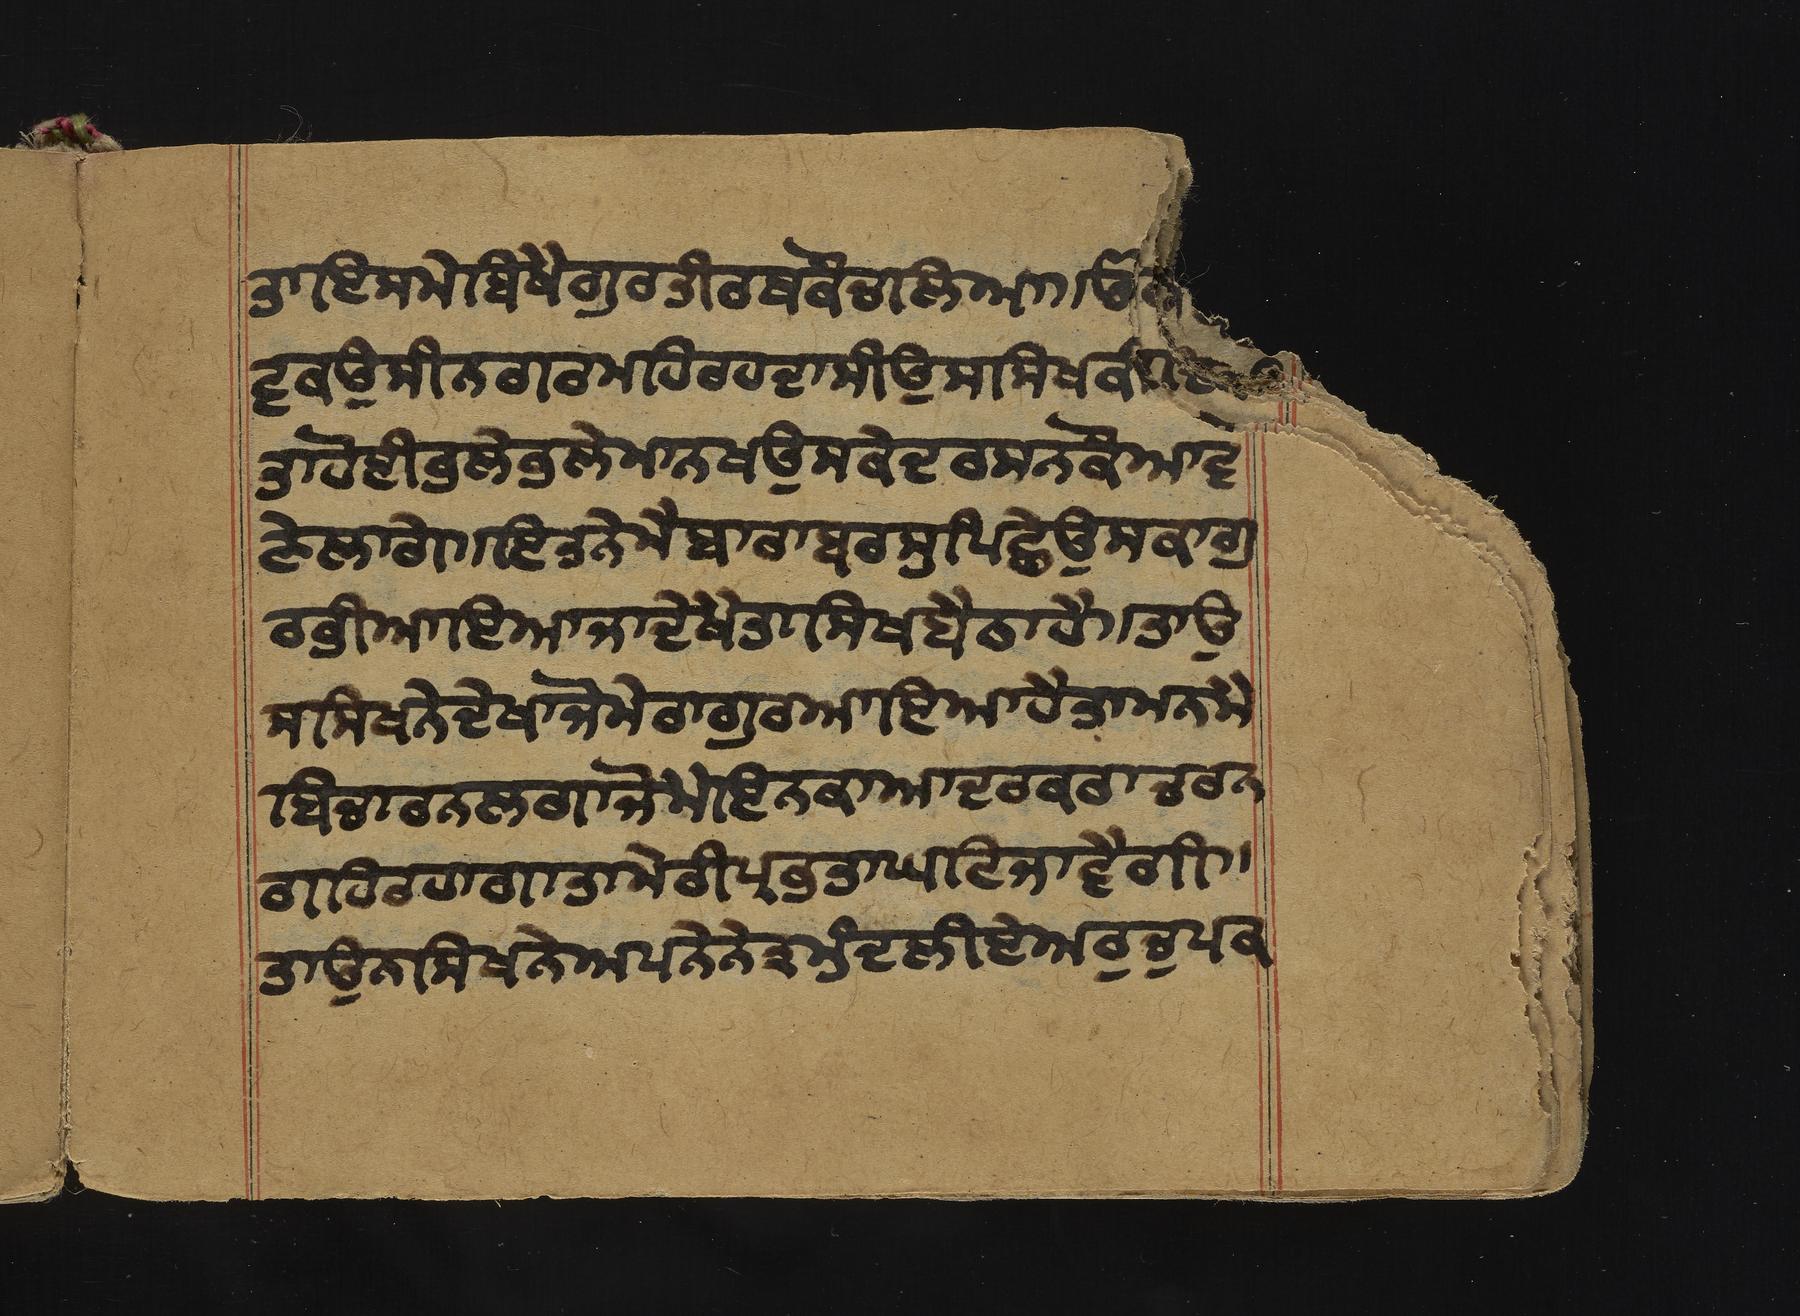 ਤਾਇਸਮੇਬਿਖੈਗੁਰਤੀਰਥਕੌਚਾਲਿਆ॥
ਵੁਕਉਸੀਨਗਰਮਹਿਰਹਦਾਸੀਉਸਸਿਖਕੀ
ਤਾਹੋਈਭਲੇਭਲੇਮਾਨਖਉਸਕੇਦਰਸਨਕੌਆਵ
ਣੇਲਾਗੇ॥ਇਤਨੇਮੈਬਾਰਾਬਰਸੁਪਿਛੇਉਸਕਾਗੁ
ਰਭੀਆਇਆਜਾਦੇਖੈਤਾਸਿਖਬੈਠਾਹੈ॥ਤਾਉ
ਸਸਿਖਨੇਦੇਖਾਜੋਮੇਰਾਗੁਰਆਇਆਹੈਤਾਮਨਮੈ
ਬਿਚਾਰਨਲਗਾਜੋਮੈਇਨਕਾਆਦਰਕਰਾਚਰਨ
ਗਹਿਰਹਾਗਾਤਾਮੇਰੀਪ੍ਰਭੁਤਾਘਟਿਜਾਵੈਗੀ॥
ਤਾਉਨਸਿਖਨੇਅਪਨੇਨੇਤ੍ਰਮੁੰਦਲੀਏਅਰੁਚੁਪਕ